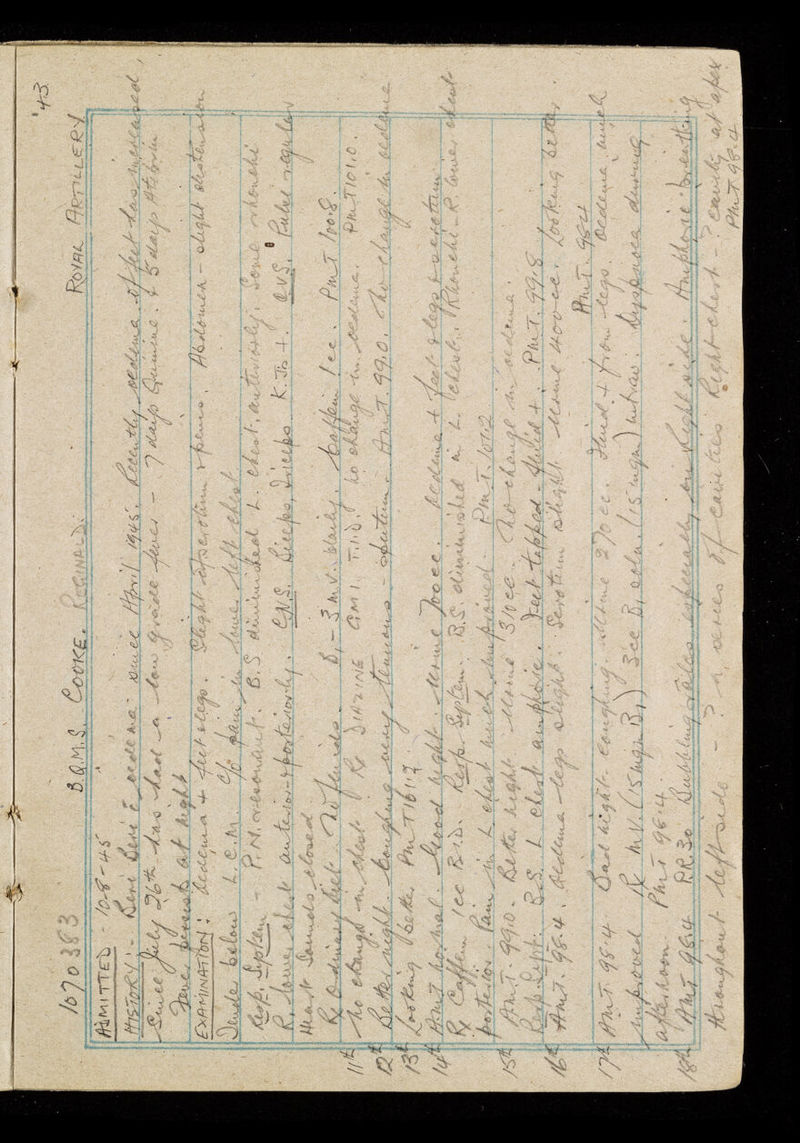 '43
1070383 B.Q.M.S. COOKE. REGINALD. ROYAL ARTILLERY
ADMITTED - 10-8-45
HISTORY:- Beri Beri c̄ oedema since April 1945. Recently oedema of feet has increased,
Since July 26th has had a low grade fever - 7 days Quinine. + 5 days Atebrin
Fever persists at night
EXAMINATION: Oedema + feet & legs. Slight of scrotum & penis. Abdomen - slight distension
Tender below L.C.M. C/o pain in lower left chest
Resp. System - P.N. resonant. B.S diminished L. chest. anteriorly. Some rhonchi
R. lower chest anterior & posteriorly. C.N.S. Biceps, Triceps K.Js +. C.V.S. Pulse regular
Heart Sounds closed
Rx Ordinary diet. No fluids. B, - 3 m.v. daily. Caffein 1cc. PmT 100.8.
11th No change in chest. Rx DIAZINE GM 1. T.I.D. no change in oedema. PmT 101.0.
12th Better night. Coughing very tenacious - sputum. AmT. 99.0. No change in oedema
13th Looking better PmT 101.2.
14th AmT normal. Good night. Urine 700cc. Oedema + feet & legs & scrotum.
Rx Caffein 1cc B.I.D. Resp. System. B.S. diminished in L. chest. Rhonchi - R. lower chest
posterior. Pain in L chest much improved. PmT. 101.2
15th AmT. 99.0. Better night Urine 310cc. No change in oedema.
Resp. Syst. B.S. L chest amphoric. Feet tapped. fluid +. PmT. 99.8
16th AmT. 98.4. Oedema - legs slight. Scrotum slight. Urine 400cc. Looking better.
PmT. 98.4
17th AmT. 98.4 Bad night. coughing. Urine 270cc. Fluid + from legs. Oedema much
improved Rx M.V. (15 mgm B1) 3cc B, soln. (15 mgm) Dyspnoea during
afternoon. PmT 98.4.
18th AmT 98.4 P.R. 30 Bubbling râles especially on right side. Amphoric breathing
throughout left side - ? a series of cavities Right chest - ? cavity at apex
PmT. 98.4